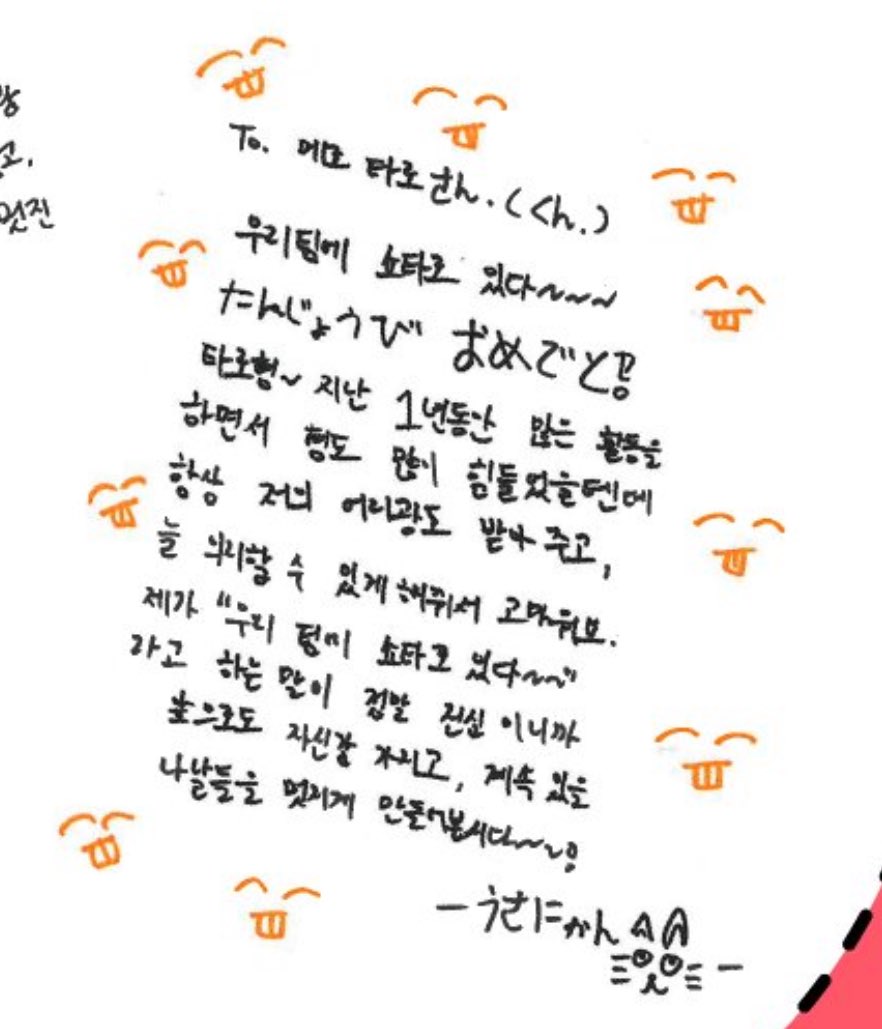 강
고,
멋진
To. 메모 타로 さん. (くん.)
우리팀에 쇼타로 있다~~~
たんじょうび おめでと공
타로형~ 지난 1년동안 많은 활동을
하면서 형도 많이 힘들었을텐데
항상 저의 어리광도 받아 주고,
늘 의리할 수 있게 해줘서 고마워요.
제가 "우리 팀에 쇼타로 있다~~"
라고 하는 말이 정말 진심 이니까
앞으로도 자신감 가지고, 계속 있을
나날들을 멋지게 만들어봅시다~~!